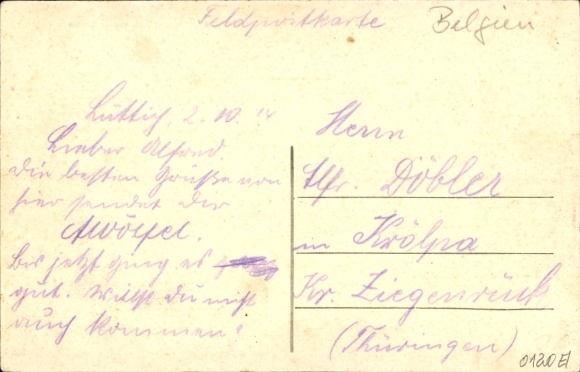 Feldpostkarte
Belgien
Lüttich, 2.10.14
Lieber Alfred.
Die besten Grüße von
hier sendet der
bis jetzt ging es
gut. Willst du nicht
auch kommen?
Herrn
Alfr. Döbler
in Krölpa
Kr. Ziegenrück
(Thüringen)
0120E/